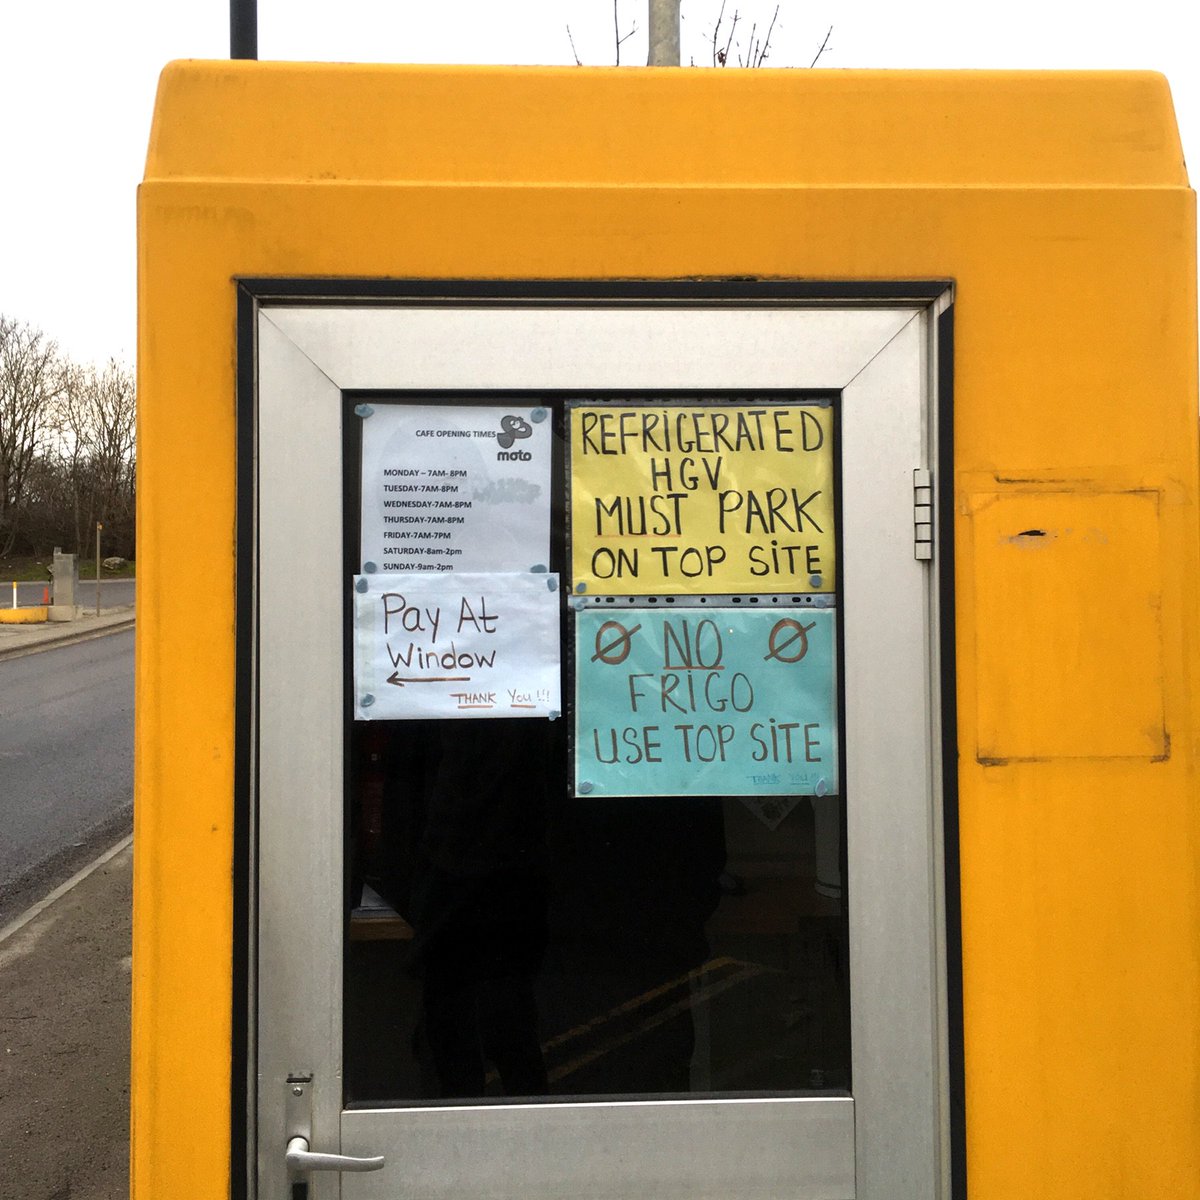 CAFE OPENING TIMES
moto
MONDAY – 7AM- 8PM
TUESDAY-7AM-8PM
WEDNESDAY-7AM-8PM
THURSDAY-7AM-8PM
FRIDAY-7AM-7PM
SATURDAY-8am-2pm
SUNDAY-9am-2pm
Pay At
Window
THANK You!!!
REFRIGERATED
HGV
MUST PARK
ON TOP SiTE
NO
FRiGO
USE TOP SiTE
THANK YOU!!!